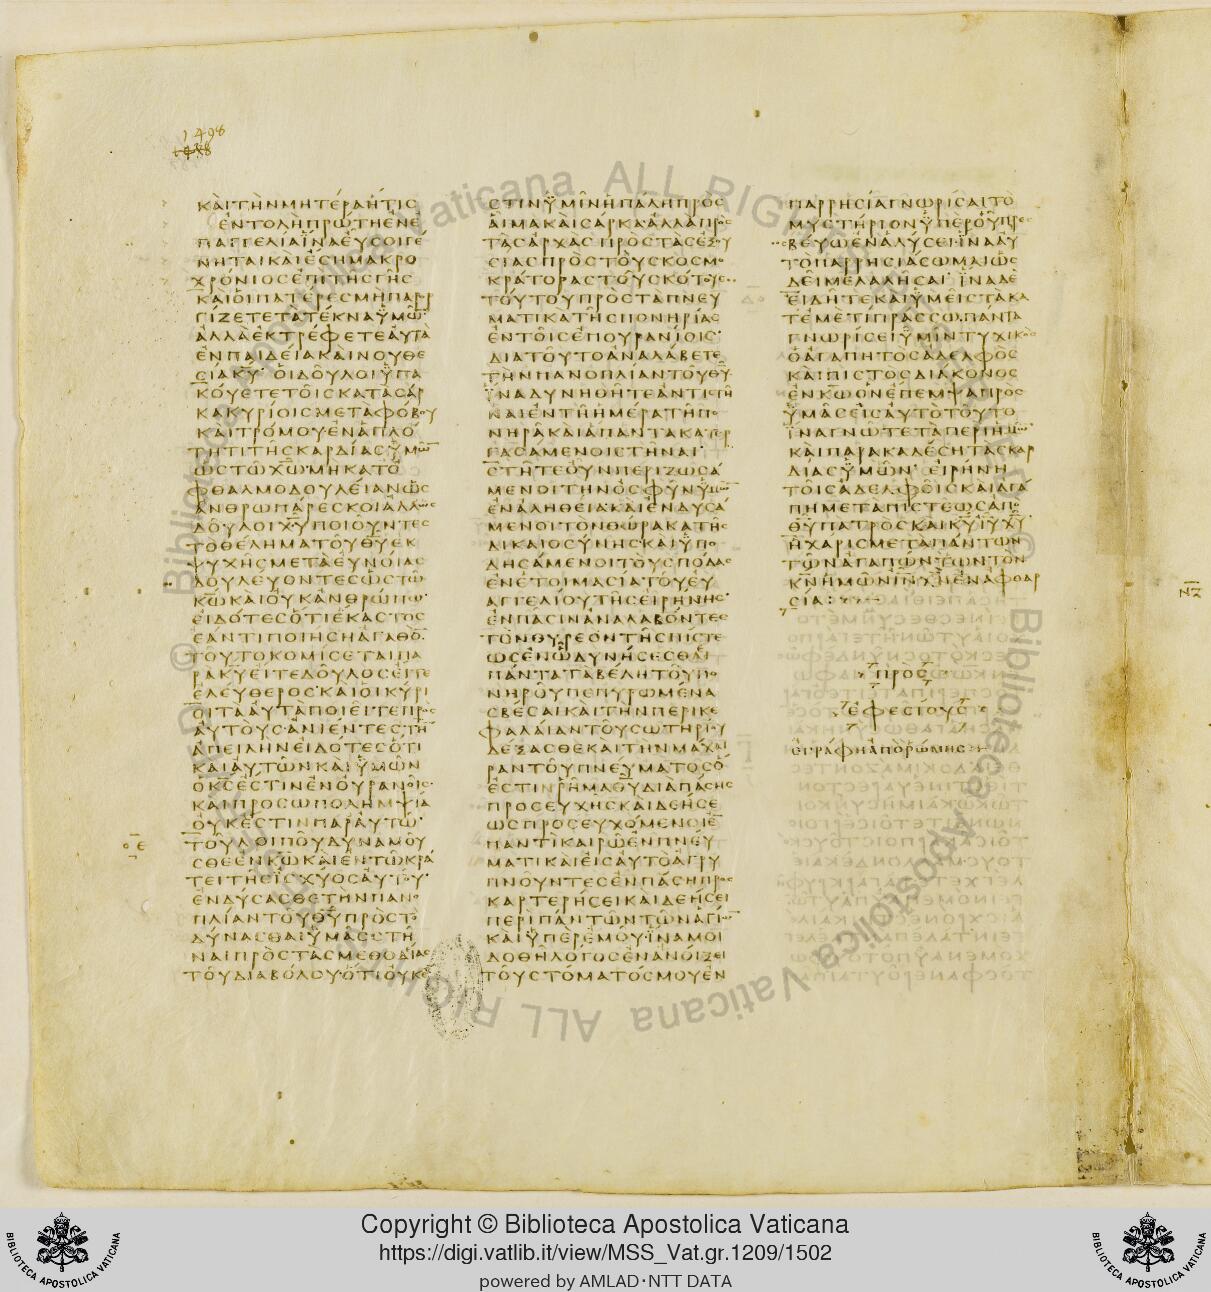 1498
ΚΑΙΤΗΝΜΗΤΕΡΑΗΤΙΣ
ΕΝΤΟΛΗΠΡΩΤΗΕΝΕ
ΠΑΓΓΕΛΙΑΙΝΑΕΥΣΟΙΓΕ
ΝΗΤΑΙΚΑΙΕΣΗΜΑΚΡΟ
ΧΡΟΝΙΟΣΕΠΙΤΗΣΓΗΣ
ΚΑΙΟΙΠΑΤΕΡΕΣΜΗΠΑΡΡ
ΓΙΖΕΤΕΤΑΤΕΚΝΑΫΜΩ̅
ΑΛΛΑΕΚΤΡΕΦΕΤΕΑΥΤΑ
ΕΝΠΑΙΔΕΙΑΚΑΙΝΟΥΘΕ
ΣΙΑΚ̅Υ̅ ΟΙΔΟΥΛΟΙΫΠΑ
ΚΟΥΕΤΕΤΟΙΣΚΑΤΑΣΑΡ
ΚΑΚΥΡΙΟΙΣΜΕΤΑΦΟΒΟΥ
ΚΑΙΤΡΟΜΟΥΕΝΑΠΛΟ
ΤΗΤΙΤΗΣΚΑΡΔΙΑΣΫΜΩ̅
ΩΣΤΩΧ̅Ω̅ΜΗΚΑΤΟ
ΦΘΑΛΜΟΔΟΥΛΕΙΑΝΩΣ
ΑΝΘΡΩΠΑΡΕΣΚΟΙΑΛΛΩΣ
ΔΟΥΛΟΙΧ̅Υ̅ΠΟΙΟΥΝΤΕΣ
ΤΟΘΕΛΗΜΑΤΟΥΘ̅Υ̅ΕΚ
ΨΥΧΗΣΜΕΤΑΕΥΝΟΙΑΣ
ΔΟΥΛΕΥΟΝΤΕΣΩΣΤΩ
Κ̅Ω̅ΚΑΙΟΥΚΑΝΘΡΩΠΩ
ΕΙΔΟΤΕΣΟΤΙΕΚΑΣΤΟΣ
ΕΑΝΤΙΠΟΙΗΣΗΑΓΑΘΟ̅
ΤΟΥΤΟΚΟΜΙΣΕΤΑΙΠΑ
ΡΑΚ̅Υ̅ΕΙΤΕΔΟΥΛΟΣΕΙΤΕ
ΕΛΕΥΘΕΡΟΣΚΑΙΟΙΚΥΡΙ
ΟΙΤΑΑΥΤΑΠΟΙΕΙΤΕΠΡΟΣ
ΑΥΤΟΥΣΑΝΙΕΝΤΕΣΤΗ̅
ΑΠΕΙΛΗΝΕΙΔΟΤΕΣΟΤΙ
ΚΑΙΑΥΤΩΝΚΑΙΫΜΩΝ
ΟΚ̅Σ̅ΕΣΤΙΝΕΝΟΥΡΑΝΟΙΣ
ΚΑΙΠΡΟΣΩΠΟΛΗΜΨΙΑ
ΟΥΚΕΣΤΙΝΠΑΡΑΥΤΩ
ΤΟΥΛΟΙΠΟΥΔΥΝΑΜΟΥ
ΣΘΕΕΝΚ̅Ω̅ΚΑΙΕΝΤΩΚΡΑ
ΤΕΙΤΗΣΪΣΧΥΟΣΑΥΤΟΥ
ΕΝΔΥΣΑΣΘΕΤΗΝΠΑΝΟ
ΠΛΙΑΝΤΟΥΘ̅Υ̅ΠΡΟΣΤΟ
ΔΥΝΑΣΘΑΙΫΜΑΣΣΤΗ
ΝΑΙΠΡΟΣΤΑΣΜΕΘΟΔΙΑΣ
ΤΟΥΔΙΑΒΟΛΟΥΟΤΙΟΥΚΕ
ΣΤΙΝΫΜΙΝΗΠΑΛΗΠΡΟΣ
ΑΙΜΑΚΑΙΣΑΡΚΑΑΛΛΑΠΡΟΣ
ΤΑΣΑΡΧΑΣΠΡΟΣΤΑΣΕΞΟΥ
ΣΙΑΣΠΡΟΣΤΟΥΣΚΟΣΜΟ
ΚΡΑΤΟΡΑΣΤΟΥΣΚΟΤΟΥΣ
ΤΟΥΤΟΥΠΡΟΣΤΑΠΝΕΥ
ΜΑΤΙΚΑΤΗΣΠΟΝΗΡΙΑΣ
ΕΝΤΟΙΣΕΠΟΥΡΑΝΙΟΙΣ
ΔΙΑΤΟΥΤΟΑΝΑΛΑΒΕΤΕ
ΤΗΝΠΑΝΟΠΛΙΑΝΤΟΥΘ̅Υ̅
ΪΝΑΔΥΝΗΘΗΤΕΑΝΤΙΣΤΗ
ΝΑΙΕΝΤΗΗΜΕΡΑΤΗΠΟ
ΝΗΡΑΚΑΙΑΠΑΝΤΑΚΑΤΕΡ
ΓΑΣΑΜΕΝΟΙΣΤΗΝΑΙ
ΣΤΗΤΕΟΥΝΠΕΡΙΖΩΣΑ
ΜΕΝΟΙΤΗΝΟΣΦΥΝΫΜΩ̅
ΕΝΑΛΗΘΕΙΑΚΑΙΕΝΔΥΣΑ
ΜΕΝΟΙΤΟΝΘΩΡΑΚΑΤΗΣ
ΔΙΚΑΙΟΣΥΝΗΣΚΑΙΫΠΟ
ΔΗΣΑΜΕΝΟΙΤΟΥΣΠΟΔΑΣ
ΕΝΕΤΟΙΜΑΣΙΑΤΟΥΕΥ
ΑΓΓΕΛΙΟΥΤΗΣΕΙΡΗΝΗΣ
ΕΝΠΑΣΙΝΑΝΑΛΑΒΟΝΤΕΣ
ΤΟΝΘΥΡΕΟΝΤΗΣΠΙΣΤΕ
ΩΣΕΝΩΔΥΝΗΣΕΣΘΑΙ
ΠΑΝΤΑΤΑΒΕΛΗΤΟΥΠΟ
ΝΗΡΟΥΠΕΠΥΡΩΜΕΝΑ
ΣΒΕΣΑΙΚΑΙΤΗΝΠΕΡΙΚΕ
ΦΑΛΑΙΑΝΤΟΥΣΩΤΗΡΙΟΥ
ΔΕΞΑΣΘΕΚΑΙΤΗΝΜΑΧΑΙ
ΡΑΝΤΟΥΠΝΕΥΜΑΤΟΣΟ
ΕΣΤΙΝΡΗΜΑΘ̅Υ̅ΔΙΑΠΑΣΗΣ
ΠΡΟΣΕΥΧΗΣΚΑΙΔΕΗΣΕ
ΩΣΠΡΟΣΕΥΧΟΜΕΝΟΙΕ̅
ΠΑΝΤΙΚΑΙΡΩΕΝΠΝΕΥ
ΜΑΤΙΚΑΙΕΙΣΑΥΤΟΑΓΡΥ
ΠΝΟΥΝΤΕΣΕΝΠΑΣΗΠΡΟΣ
ΚΑΡΤΕΡΗΣΕΙΚΑΙΔΕΗΣΕΙ
ΠΕΡΙΠΑΝΤΩΝΤΩΝΑΓΙΩ̅
ΚΑΙΫΠΕΡΕΜΟΥΪΝΑΜΟΙ
ΔΟΘΗΛΟΓΟΣΕΝΑΝΟΙΞΕΙ
ΤΟΥΣΤΟΜΑΤΟΣΜΟΥΕΝ
ΠΑΡΡΗΣΙΑΓΝΩΡΙΣΑΙΤΟ
ΜΥΣΤΗΡΙΟΝΫΠΕΡΟΥΠΡΕ
ΣΒΕΥΩΕΝΑΛΥΣΕΙΪΝΑΑΥ
ΤΟΠΑΡΡΗΣΙΑΣΩΜΑΙΩΣ
ΔΕΙΜΕΛΑΛΗΣΑΙ ΪΝΑΔΕ
ΕΙΔΗΤΕΚΑΙΫΜΕΙΣΤΑΚΑ
ΤΕΜΕΤΙΠΡΑΣΣΩΠΑΝΤΑ
ΓΝΩΡΙΣΕΙΫΜΙΝΤΥΧΙΚΟΣ
ΟΑΓΑΠΗΤΟΣΑΔΕΛΦΟΣ
ΚΑΙΠΙΣΤΟΣΔΙΑΚΟΝΟΣ
ΕΝΚ̅Ω̅ΟΝΕΠΕΜΨΑΠΡΟΣ
ΫΜΑΣΕΙΣΑΥΤΟΤΟΥΤΟ
ΪΝΑΓΝΩΤΕΤΑΠΕΡΙΗΜΩ̅
ΚΑΙΠΑΡΑΚΑΛΕΣΗΤΑΣΚΑΡ
ΔΙΑΣΫΜΩΝ ΕΙΡΗΝΗ
ΤΟΙΣΑΔΕΛΦΟΙΣΚΑΙΑΓΑ
ΠΗΜΕΤΑΠΙΣΤΕΩΣΑΠΟ
Θ̅Υ̅ΠΑΤΡΟΣΚΑΙΚ̅Υ̅Ι̅Υ̅Χ̅Υ̅
ΗΧΑΡΙΣΜΕΤΑΠΑΝΤΩΝ
ΤΩΝΑΓΑΠΩΝΤΩΝΤΟΝ
Κ̅Ν̅ΗΜΩΝΙ̅Ν̅Χ̅Ν̅ΕΝΑΦΘΑΡ
ΣΙΑ:
ΠΡΟΣ
ΕΦΕΣΙΟΥΣ
ΕΓΡΑΦΗΑΠΟΡΩΜΗΣ
Copyright © Biblioteca Apostolica Vaticana
https://digi.vatlib.it/view/MSS_Vat.gr.1209/1502
powered by AMLAD·NTT DATA
BIBLIOTECA APOSTOLICA VATICANA
BIBLIOTECA APOSTOLICA VATICANA